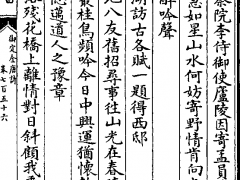 察院李侍御使廬陵因寄孟員
意如星山水何妨寄野情肯向
醉吟聲
湖訪古各賦一題得西邸
八友舊招尋事往山光在春
叢桂鳥頻吟今日中興運猶懷
憶遇道人之豫章
落殘花橋上離情對日斜顧我
御定全唐詩
卷七百五十六